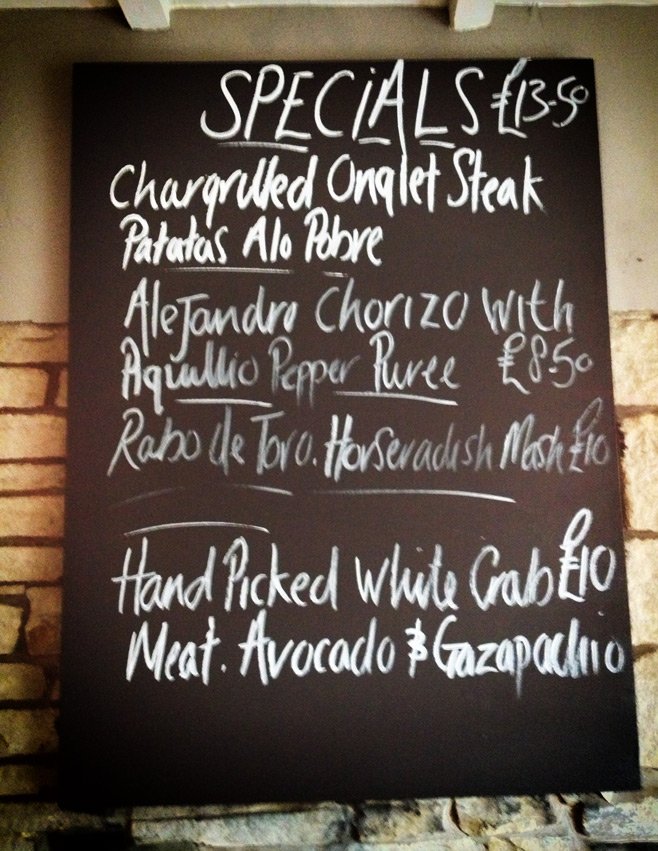 SPECiALS £13-50
Chargrilled Onglet Steak
Patatas Alo Pobre
Alejandro Chorizo with
Aquillio Pepper Puree £8-50
Rabo de Toro. Horseradish Mash £10
Hand Picked White Crab £10
Meat. Avocado & Gazapachio